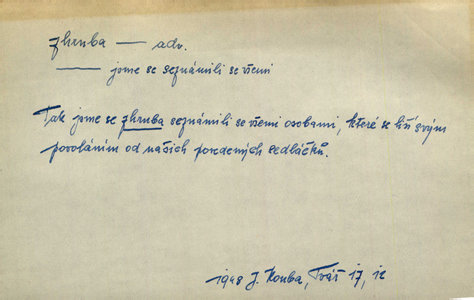 zhruba — adv.
— jsme se seznámili se všemi
Tak jsme se zhruba seznámili se všemi osobami, které se liší svým
povoláním od našich poředných sedláčků.
1948 J. Kouba, Tváš 17, 12